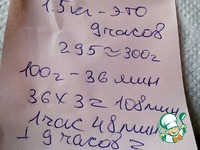 1.5 кг - это
9 часов
295 ≈ 300г
100г - 36 мин
36 х 3 = 108 мин
1 час 48 мин
+ 9 часов =